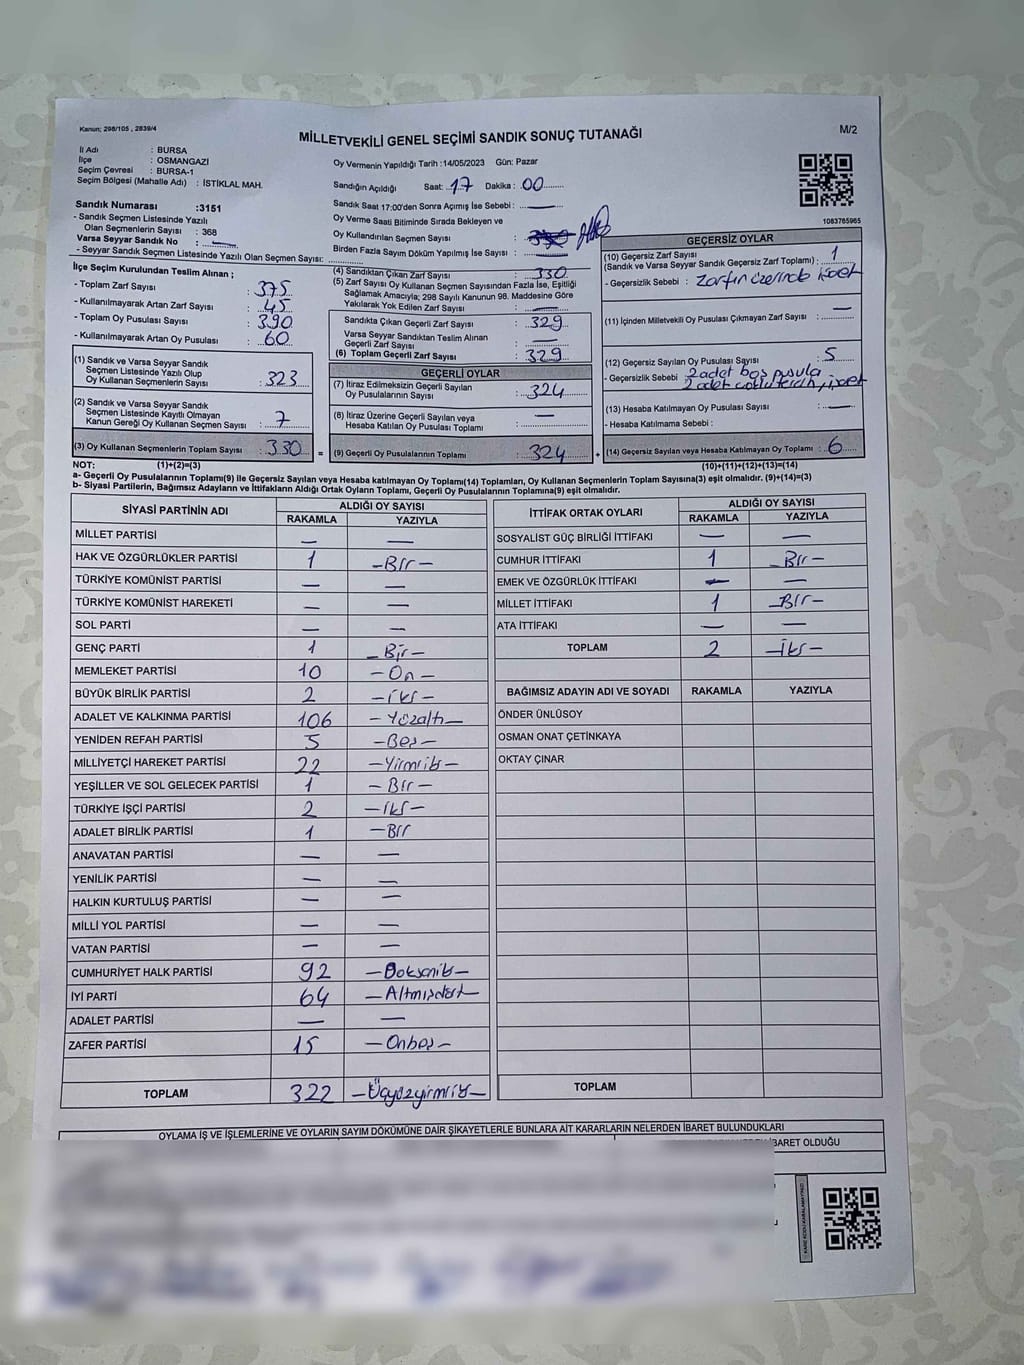 Kanun; 298/105, 2839/4
MİLLETVEKİLİ GENEL SEÇİMİ SANDIK SONUÇ TUTANAĞI
M/2
İl Adı : BURSA
İlçe : OSMANGAZİ
Seçim Çevresi : BURSA-1
Seçim Bölgesi (Mahalle Adı) : İSTİKLAL MAH.
Sandık Numarası :3151
- Sandık Seçmen Listesinde Yazılı
Olan Seçmenlerin Sayısı : 368
Varsa Seyyar Sandık No : —
- Seyyar Sandık Seçmen Listesinde Yazılı Olan Seçmen Sayısı:
Oy Vermenin Yapıldığı Tarih :14/05/2023 Gün: Pazar
Sandığın Açıldığı Saat: 17 Dakika : 00
Sandık Saat 17:00'den Sonra Açılmış İse Sebebi : —
Oy Verme Saati Bitiminde Sırada Bekleyen ve
Oy Kullandırılan Seçmen Sayısı :
Birden Fazla Sayım Döküm Yapılmış İse Sayısı : —
1083765965
İlçe Seçim Kurulundan Teslim Alınan ;
- Toplam Zarf Sayısı : 375
- Kullanılmayarak Artan Zarf Sayısı : 45
- Toplam Oy Pusulası Sayısı : 390
- Kullanılmayarak Artan Oy Pusulası : 60
(1) Sandık ve Varsa Seyyar Sandık
Seçmen Listesinde Yazılı Olup
Oy Kullanan Seçmenlerin Sayısı : 323
(2) Sandık ve Varsa Seyyar Sandık
Seçmen Listesinde Kayıtlı Olmayan
Kanun Gereği Oy Kullanan Seçmen Sayısı : 7
(3) Oy Kullanan Seçmenlerin Toplam Sayısı : 330
(4) Sandıktan Çıkan Zarf Sayısı : 330
(5) Zarf Sayısı Oy Kullanan Seçmen Sayısından Fazla İse, Eşitliği
Sağlamak Amacıyla; 298 Sayılı Kanunun 98. Maddesine Göre
Yakılarak Yok Edilen Zarf Sayısı : —
Sandıkta Çıkan Geçerli Zarf Sayısı : 329
Varsa Seyyar Sandıktan Teslim Alınan
Geçerli Zarf Sayısı : —
(6) Toplam Geçerli Zarf Sayısı : 329
GEÇERLİ OYLAR
(7) İtiraz Edilmeksizin Geçerli Sayılan
Oy Pusulalarının Sayısı : 324
(8) İtiraz Üzerine Geçerli Sayılan veya
Hesaba Katılan Oy Pusulası Toplamı : —
= (9) Geçerli Oy Pusulalarının Toplamı : 324
GEÇERSİZ OYLAR
(10) Geçersiz Zarf Sayısı
(Sandık ve Varsa Seyyar Sandık Geçersiz Zarf Toplamı) : 1
- Geçersizlik Sebebi : Zarfın üzerinde işaret
(11) İçinden Milletvekili Oy Pusulası Çıkmayan Zarf Sayısı : —
(12) Geçersiz Sayılan Oy Pusulası Sayısı : 5
- Geçersizlik Sebebi : 2 adet boş pusula
2 adet işaret
(13) Hesaba Katılmayan Oy Pusulası Sayısı : —
- Hesaba Katılmama Sebebi :
+ (14) Geçersiz Sayılan veya Hesaba Katılmayan Oy Toplamı : 6
NOT: (1)+(2)=(3) (10)+(11)+(12)+(13)=(14)
a- Geçerli Oy Pusulalarının Toplamı(9) ile Geçersiz Sayılan veya Hesaba katılmayan Oy Toplamı(14) Toplamları, Oy Kullanan Seçmenlerin Toplam Sayısına(3) eşit olmalıdır. (9)+(14)=(3)
b- Siyasi Partilerin, Bağımsız Adayların ve İttifakların Aldığı Ortak Oyların Toplamı, Geçerli Oy Pusulalarının Toplamına(9) eşit olmalıdır.
SİYASİ PARTİNİN ADI ALDIĞI OY SAYISI
RAKAMLA YAZIYLA
MİLLET PARTİSİ — —
HAK VE ÖZGÜRLÜKLER PARTİSİ 1 -Bir-
TÜRKİYE KOMÜNİST PARTİSİ — —
TÜRKİYE KOMÜNİST HAREKETİ — —
SOL PARTİ — —
GENÇ PARTİ 1 -Bir-
MEMLEKET PARTİSİ 10 -On-
BÜYÜK BİRLİK PARTİSİ 2 -iki-
ADALET VE KALKINMA PARTİSİ 106 -Yüzaltı-
YENİDEN REFAH PARTİSİ 5 -Beş-
MİLLİYETÇİ HAREKET PARTİSİ 22 -Yirmiiki-
YEŞİLLER VE SOL GELECEK PARTİSİ 1 -Bir-
TÜRKİYE İŞÇİ PARTİSİ 2 -iki-
ADALET BİRLİK PARTİSİ 1 -Bir
ANAVATAN PARTİSİ — —
YENİLİK PARTİSİ — —
HALKIN KURTULUŞ PARTİSİ — —
MİLLİ YOL PARTİSİ — —
VATAN PARTİSİ — —
CUMHURİYET HALK PARTİSİ 92 -Doksaniki-
İYİ PARTİ 64 -Altmışdört-
ADALET PARTİSİ — —
ZAFER PARTİSİ 15 -Onbeş-
TOPLAM 322 -Üçyüzyirmiiki-
İTTİFAK ORTAK OYLARI ALDIĞI OY SAYISI
RAKAMLA YAZIYLA
SOSYALİST GÜÇ BİRLİĞİ İTTİFAKI — —
CUMHUR İTTİFAKI 1 -Bir-
EMEK VE ÖZGÜRLÜK İTTİFAKI — —
MİLLET İTTİFAKI 1 -Bir-
ATA İTTİFAKI — —
TOPLAM 2 -İki-
BAĞIMSIZ ADAYIN ADI VE SOYADI RAKAMLA YAZIYLA
ÖNDER ÜNLÜSOY
OSMAN ONAT ÇETİNKAYA
OKTAY ÇINAR
TOPLAM
OYLAMA İŞ VE İŞLEMLERİNE VE OYLARIN SAYIM DÖKÜMÜNE DAİR ŞİKAYETLERLE BUNLARA AİT KARARLARIN NELERDEN İBARET BULUNDUKLARI
BARET OLDUĞU